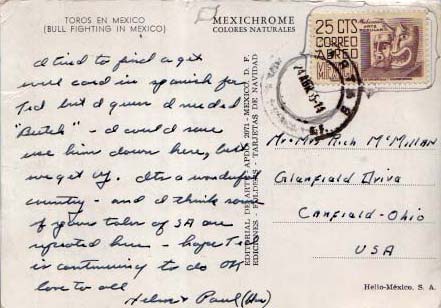 TOROS EN MEXICO
(BULL FIGHTING IN MEXICO)
MEXICHROME
COLORES NATURALES
I tried to find a get
well card in spanish for
Ted but I guess I needed
"Butch" - I could sure
use him down here, but
we get by. Its a wonderful
country - and I think some
of your tales of SA are
repeated here - hope Ted
is continuing to do OK
love to all
Helen & Paul
EDITORIAL DE ARTE APDO. 2971 - MEXICO, D. F.
EDICIONES - FOLDERS - TARJETAS DE NAVIDAD
25 CTS
CORREO
AEREO
Mr + Mrs Rich McMillan
Glanfield Drive
Canfield - Ohio
USA
Helio-México, S. A.